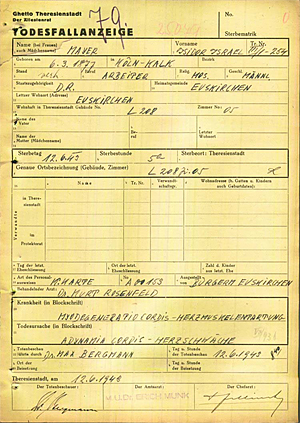 Ghetto Theresienstadt
Der Ältestenrat
79.
No.
TODESFALLANZEIGE
Sterbematrik
Name (bei Frauen auch Mädchenname) MAYER
Vorname ISIDOR ISRAEL Tr. Nr. -254
Geboren am 6.3.1877 in KÖLN-KALK Bezirk
Stand Beruf ARBEITER Relig. MOS. Geschl. MÄNNL.
Staatszugehörigkeit D.R. Heimatsgemeinde EUSKIRCHEN
Letzter Wohnort (Adresse) EUSKIRCHEN
Wohnhaft in Theresienstadt Gebäude No. L 208 Zimmer No. 05
Name des Vaters Beruf Letzter Wohnort
Name der Mutter (Mädchenname)
Sterbetag 12.6.43 Sterbestunde 5 Sterbeort: Theresienstadt
Genaue Ortsbezeichnung (Gebäude, Zimmer) L 208 05
Name Tr. Nr. Verwandtschaftsgr. Wohnadresse (b. Gatten u. Kindern auch Geburtsdaten)
In Theresienstadt
Im Protektorat
Tag der letzt. Eheschliessung Ort der letzt. Eheschliessung Zahl d. Kinder aus letzt. Ehe
Art des Personalausweises K.KARTE No. A 00153 Ausgestellt von BÜRGERM. EUSKIRCHEN
Behandelnder Arzt Dr. KURT ROSENFELD
Krankheit (in Blockschrift)
MYODEGENERATIO CORDIS - HERZMUSKELENTARTUNG
Todesursache (in Blockschrift)
ADYNAMIA CORDIS - HERZSCHWÄCHE
Totenbeschau führte durch Dr. MAX BERGMANN Tag u. Stunde der Totenbeschau 12.6.1943
Ort der Beisetzung Tag u. Stunde der Beisetzung
Theresienstadt, am 12.6.1943
Der Totenbeschauer: Der Amtsarzt: Der Chefarzt:
Bergmann